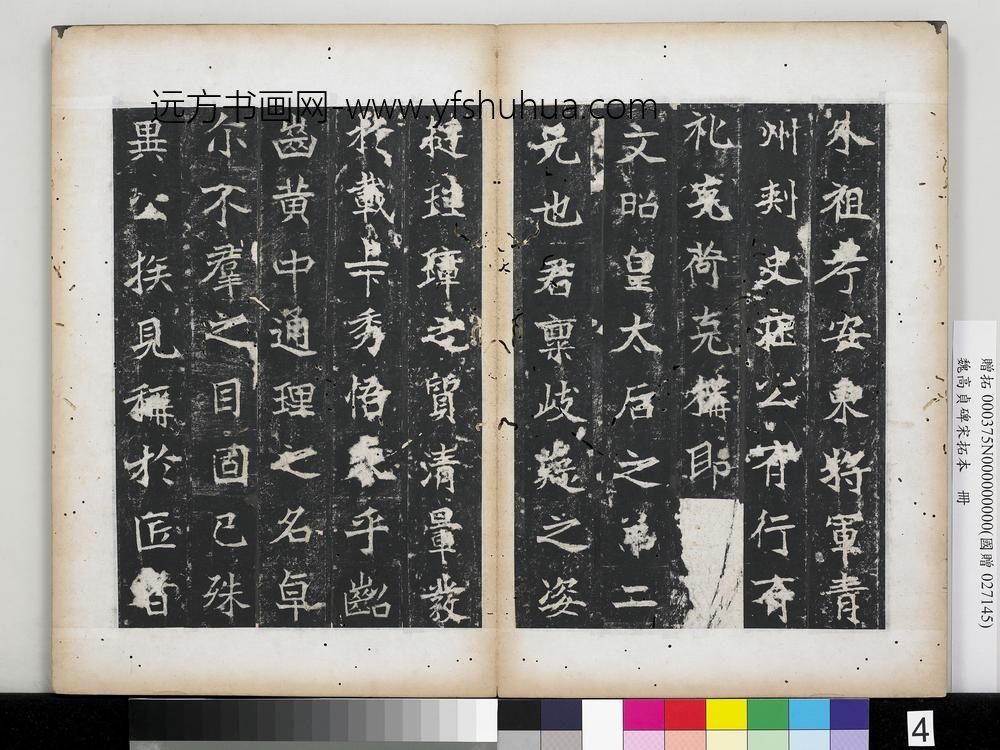 远方书画网-www.yfshuhua.com
外祖考安東將軍青
州刾史莊公有行有
礼克荷克構即
文昭皇太后之弟二
兄也君稟歧嶷之姿
挺珪璋之質清暈發
於載卡秀悟表乎齠
齒黄中通理之名卓
尔不羣之目固已殊
異公族見稱於匠首
贈拓 000375N000000000(國贈 027145)
魏高貞碑宋拓本 冊
4